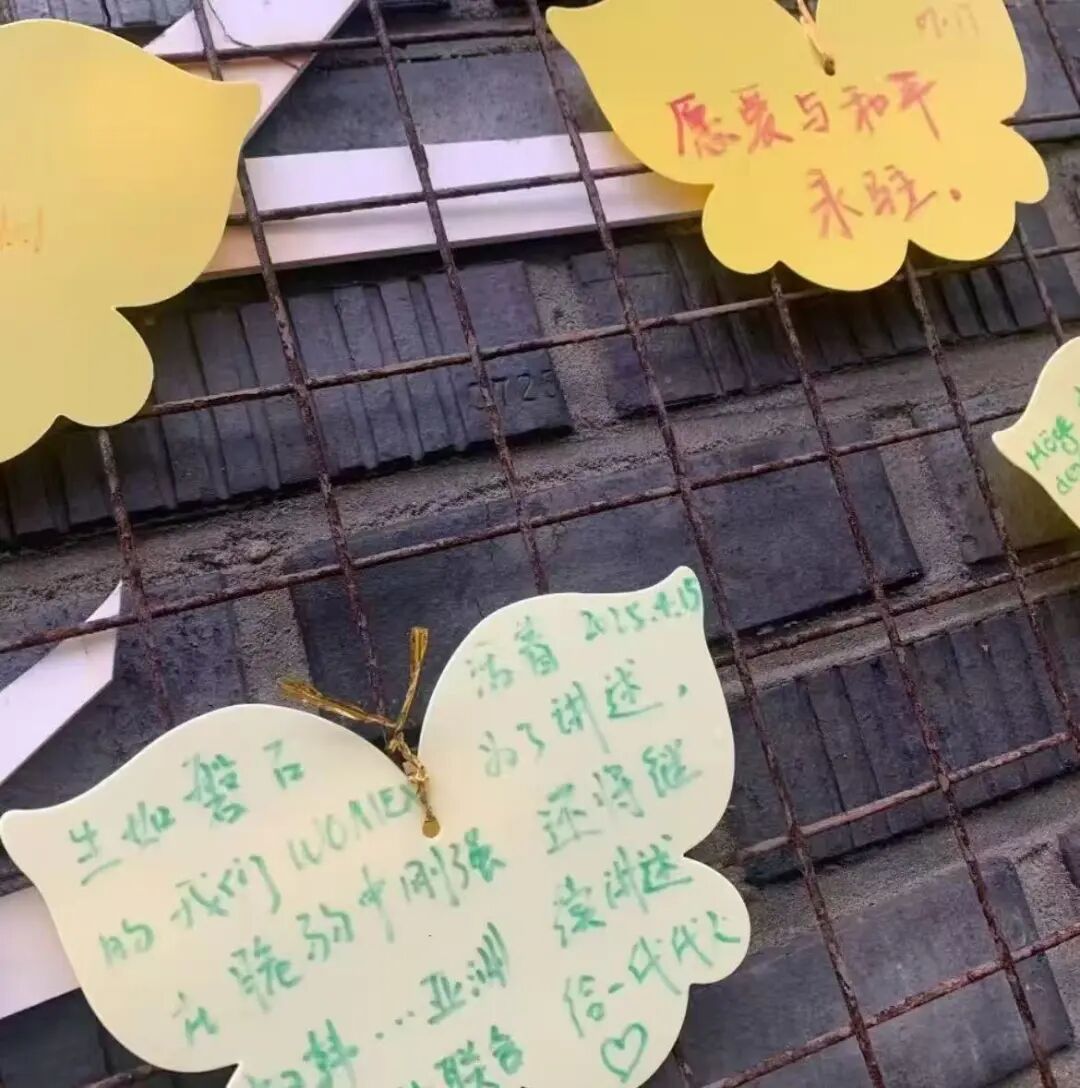 愿爱与和平
永驻.
Möge
生如磐石
的我们 WOMEN
在脆弱中刚强
抖...亚洲
联合
活着 2025.4.15
为了讲述.
还将继
续讲述
给一代代人